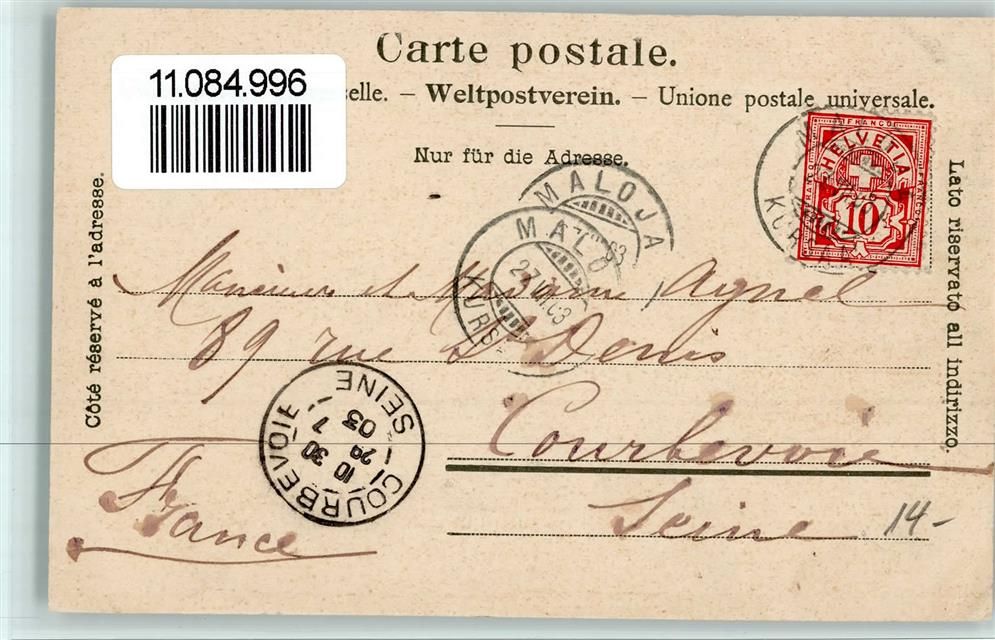 Carte postale.
11.084.996
selle. – Weltpostverein. – Unione postale universale.
Nur für die Adresse.
Côté réservé à l'adresse.
Lato riservato all indirizzo.
FRANCO
HELVETIA
10
MALOJA
MALO
27.VII.03
KURS
Monsieur et Madame Agnel
89 rue St Denis
Courbevoie
Seine
France
COURBEVOIE
SEINE
10 30
29 7
03
14-